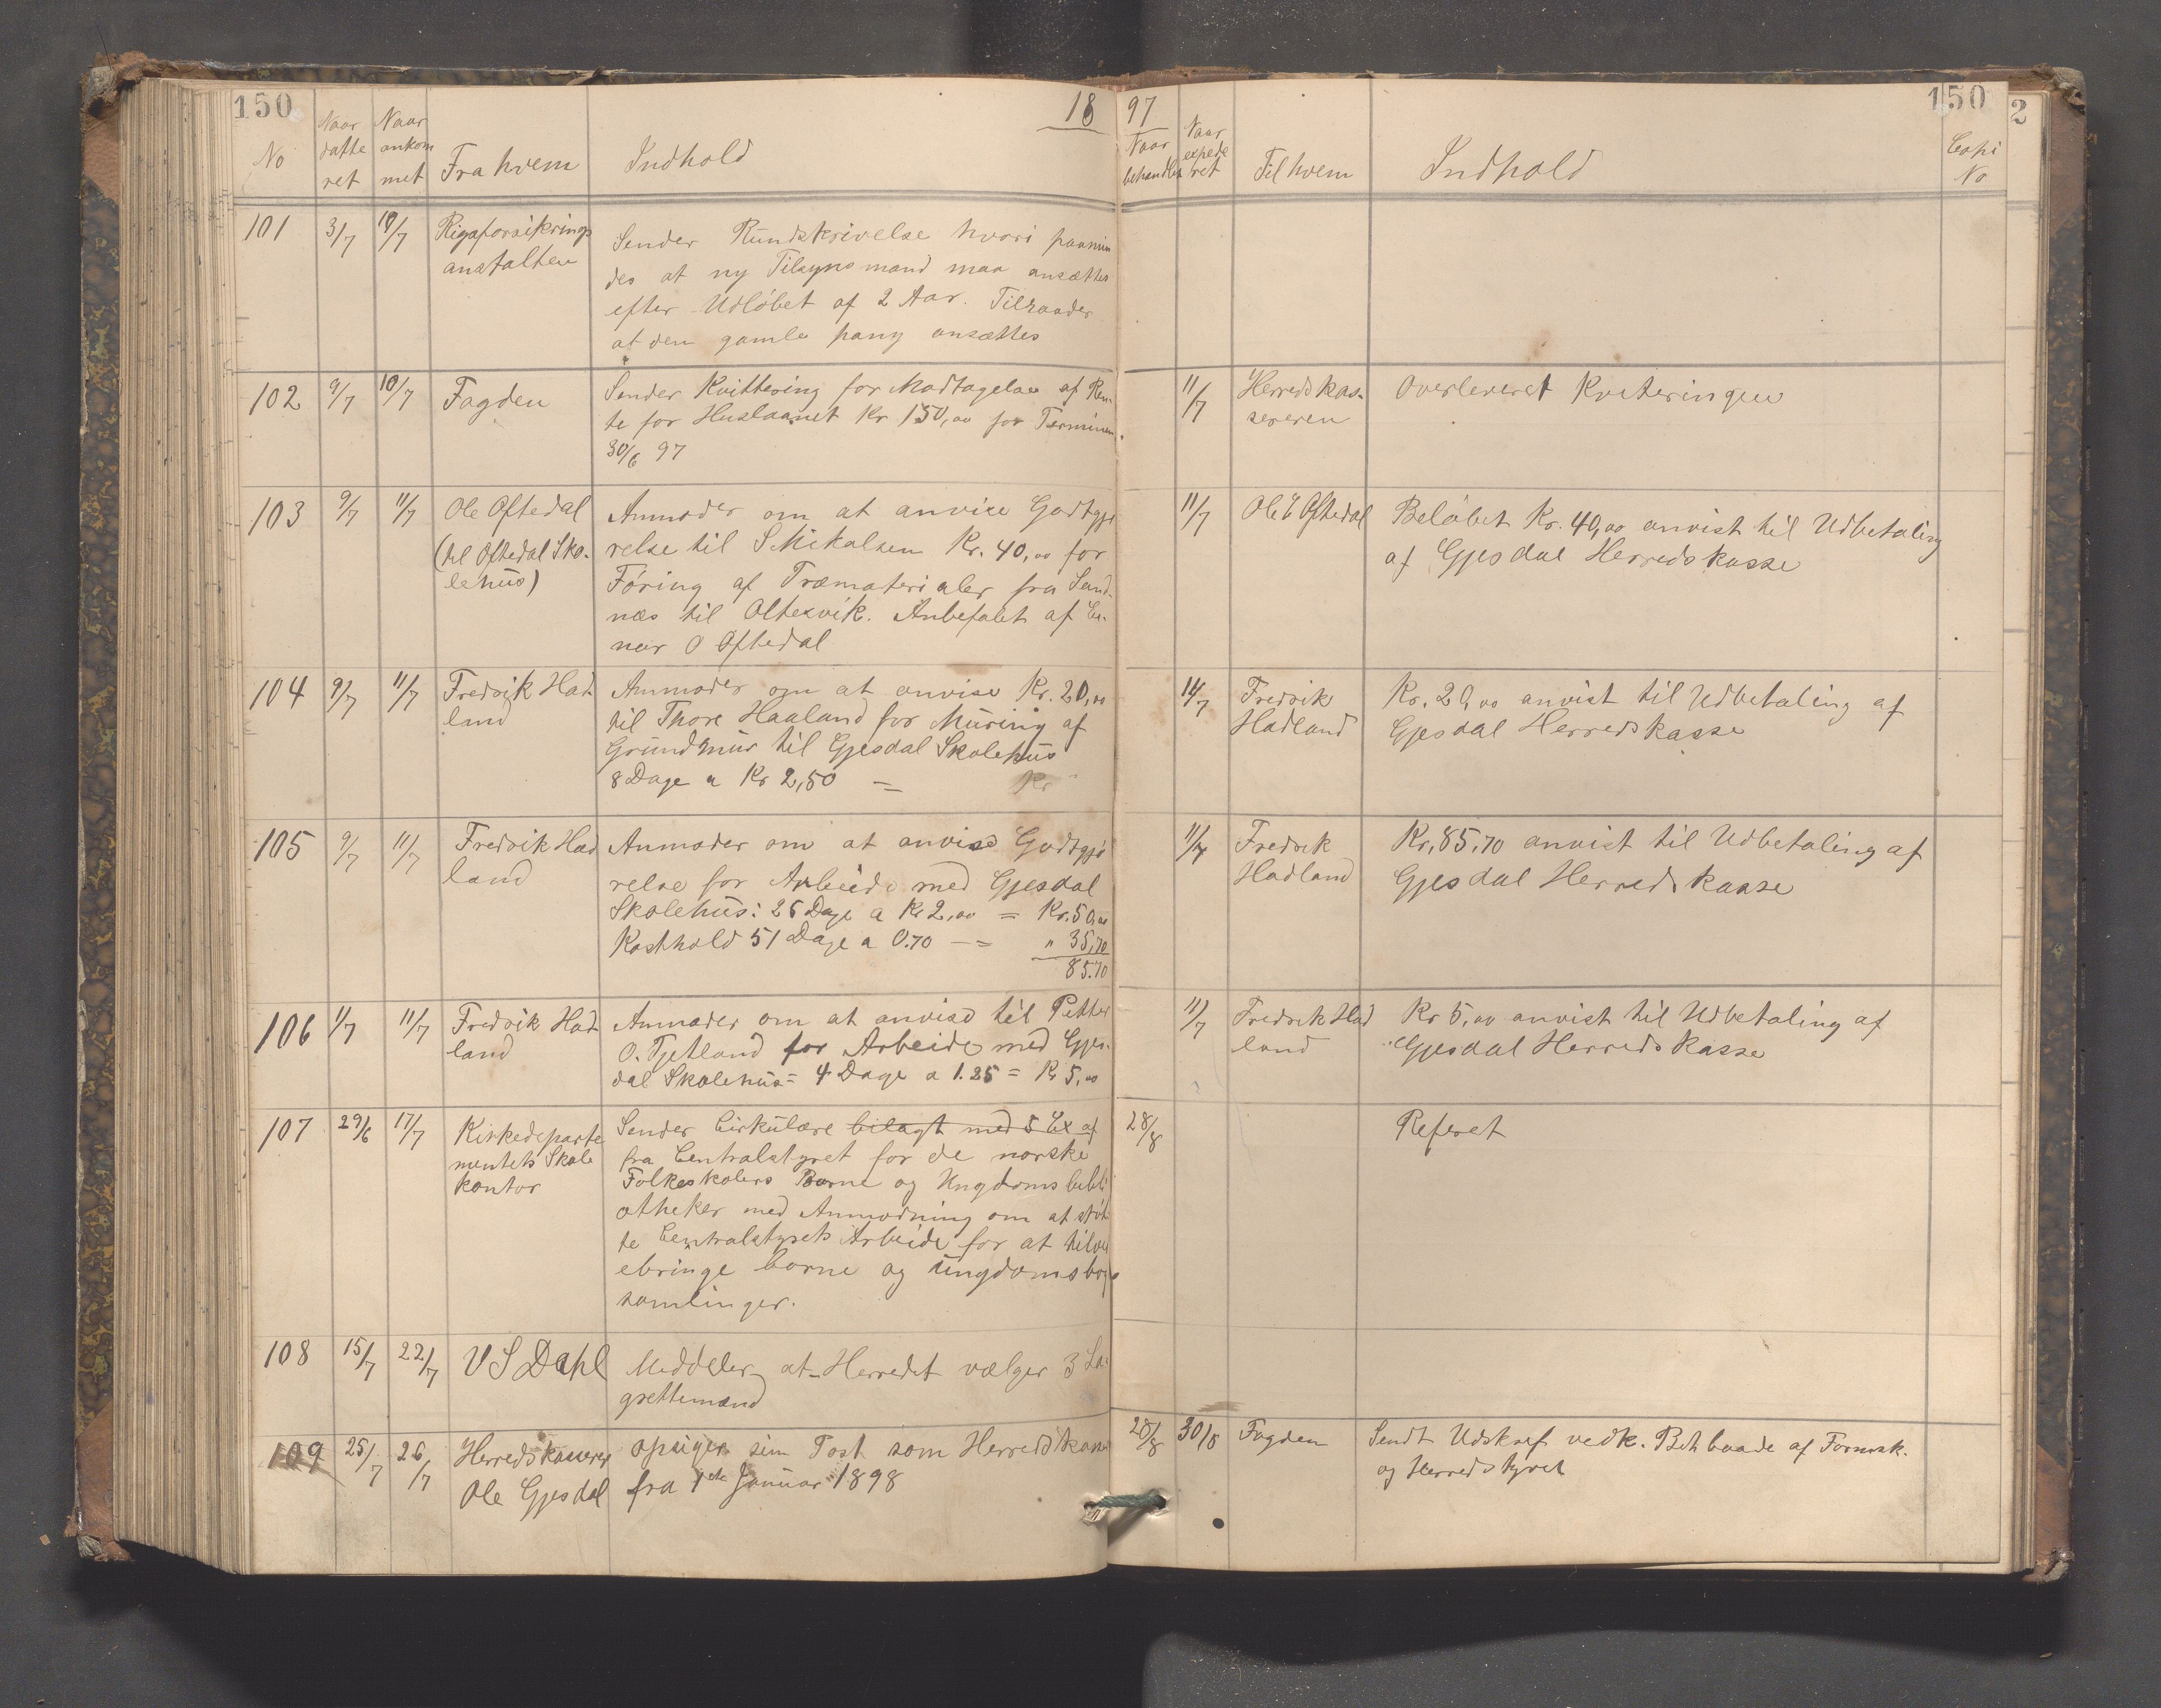 150
18
97
150
2
No
Naar datte ret
Naar ankom met
Fra hvem
Indhold
Naar behandlet
Naar expede ret
Til hvem
Indhold
Copi No
101 3/7 10/7 Rigsforsikrings
anstalten
Sender Rundskrivelse hvori paamin
des at ny Tilsynsmand maa ansættes
efter Udløbet af 2 Aar. Tilraader
at den gamle paany ansættes
102 9/7 10/7 Fogden
Sender Kvittering for Modtagelse af Ren-
te for Huslaanet Kr 150,00 for Terminen
30/6 97
11/7 Herredskas-
sereren
Overleveret Kviteringen
103 9/7 11/7 Ole Oftedal
(til Oftedal Sko-
lehus)
Anmoder om at anvise Godtgjø
relse til S Mikalsen Kr. 40,00 for
Føring af Træmaterialer fra Sand-
næs til Oltesvik. Anbefalet af Ei-
nar O Oftedal
11/7 Ole E Oftedal
Beløbet Kr. 40,00 anvist til Udbetaling
af Gjesdal Herredskasse
104 9/7 11/7 Fredrik Had
land
Anmoder om at anvise Kr. 20,00
til Thore Haaland for Muring af
Grundmur til Gjesdal Skolehus
8 Dage a Kr 2,50 = Kr
14/7 Fredrik
Hadland
Kr. 20,00 anvist til Udbetaling af
Gjesdal Herredskasse
105 9/7 11/7 Fredrik Had
land
Anmoder om at anvise Godtgjø
relse for Arbeide med Gjesdal
Skolehus: 25 Dage a Kr 2,00 = Kr. 50,00
Kosthold 51 Dage a 0.70 — = " 35,70
85.70
11/7 Fredrik
Hadland
Kr. 85,70 anvist til Udbetaling af
Gjesdal Herredskasse
106 11/7 11/7 Fredrik Had
land
Anmoder om at anvise til Petter
O. Tjetland for Arbeide med Gjes-
dal Skolehus = 4 Dage a 1.25 = Kr 5,00
11/7 Fredrik Had
land
Kr 5,00 anvist til Udbetaling af
Gjesdal Herredskasse
107 29/6 17/7 Kirkedeparte
mentets Skole
kontor
Sender Cirkulære bilagt med 5 Ex af
fra Centralstyret for de norske
Folkeskolers Barne og Ungdomsbibli
otheker med Anmodning om at støt
te Centralstyrets Arbeide for at tilvei
ebringe barne og ungdomsbog
samlinger.
28/8
Referet
108 15/7 22/7 V S Dahl
Meddeler at Herredet vælger 3 La-
grettemænd
109 25/7 26/7 Herredskasserer
Ole Gjesdal
opsiger sin Post som Herredskasse
fra 1ste Januar 1898
28/8 30/8 Fogden
Sendt Udskrift vedk. Beh baade af Formsk.
og Herredstyret